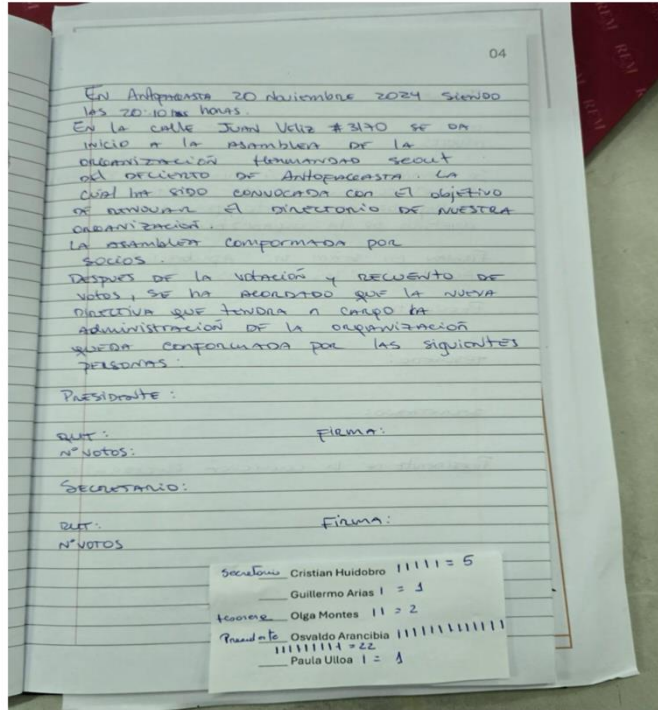 04
EN ANTOFAGASTA 20 Noviembre 2024 SIENDO
las 20:10 hrs HORAS.
EN LA CALLE JUAN VELIZ #3170 SE DA
INICIO A LA ASAMBLEA DE LA
ORGANIZACIÓN HERMANDAD SCOUT
DEL DECIERTO DE ANTOFAGASTA. LA
CUAL HA SIDO CONVOCADA CON El objetivo
DE RENOVAR El DIRECTORIO DE NUESTRA
ORGANIZACIÓN.
LA ASAMBLEA COMFORMADA POR
SOCIOS.
DESPUES DE LA VOTACIÓN Y RECUENTO DE
VOTOS, SE HA ACORDADO QUE LA NUEVA
DIRECTIVA QUE TENDRA A CARGO LA
ADMINISTRACIÓN DE LA ORGANIZACIÓN
QUEDA CONFORMADA POR LAS SIGUIENTES
PERSONAS:
PRESIDENTE:
RUT: FIRMA:
N° VOTOS:
SECRETARIO:
RUT: FIRMA:
N° VOTOS
Secretario Cristian Huidobro | | | | | = 5
Guillermo Arias | = 1
tesorera Olga Montes | | = 2
Presidente Osvaldo Arancibia | | | | | | | | | | | | |
| | | | | | | | | = 22
Paula Ulloa | = 1
REM REM REM